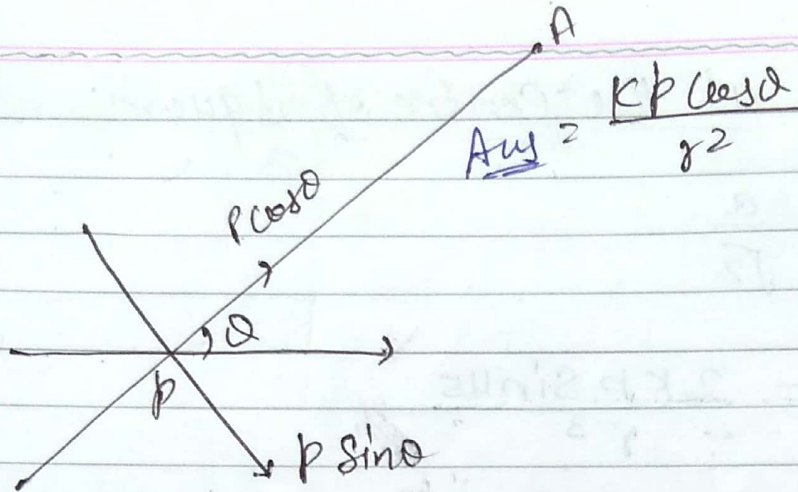 A
Ans = KP cosθ
r2
Pcosθ
θ
P
P Sinθ